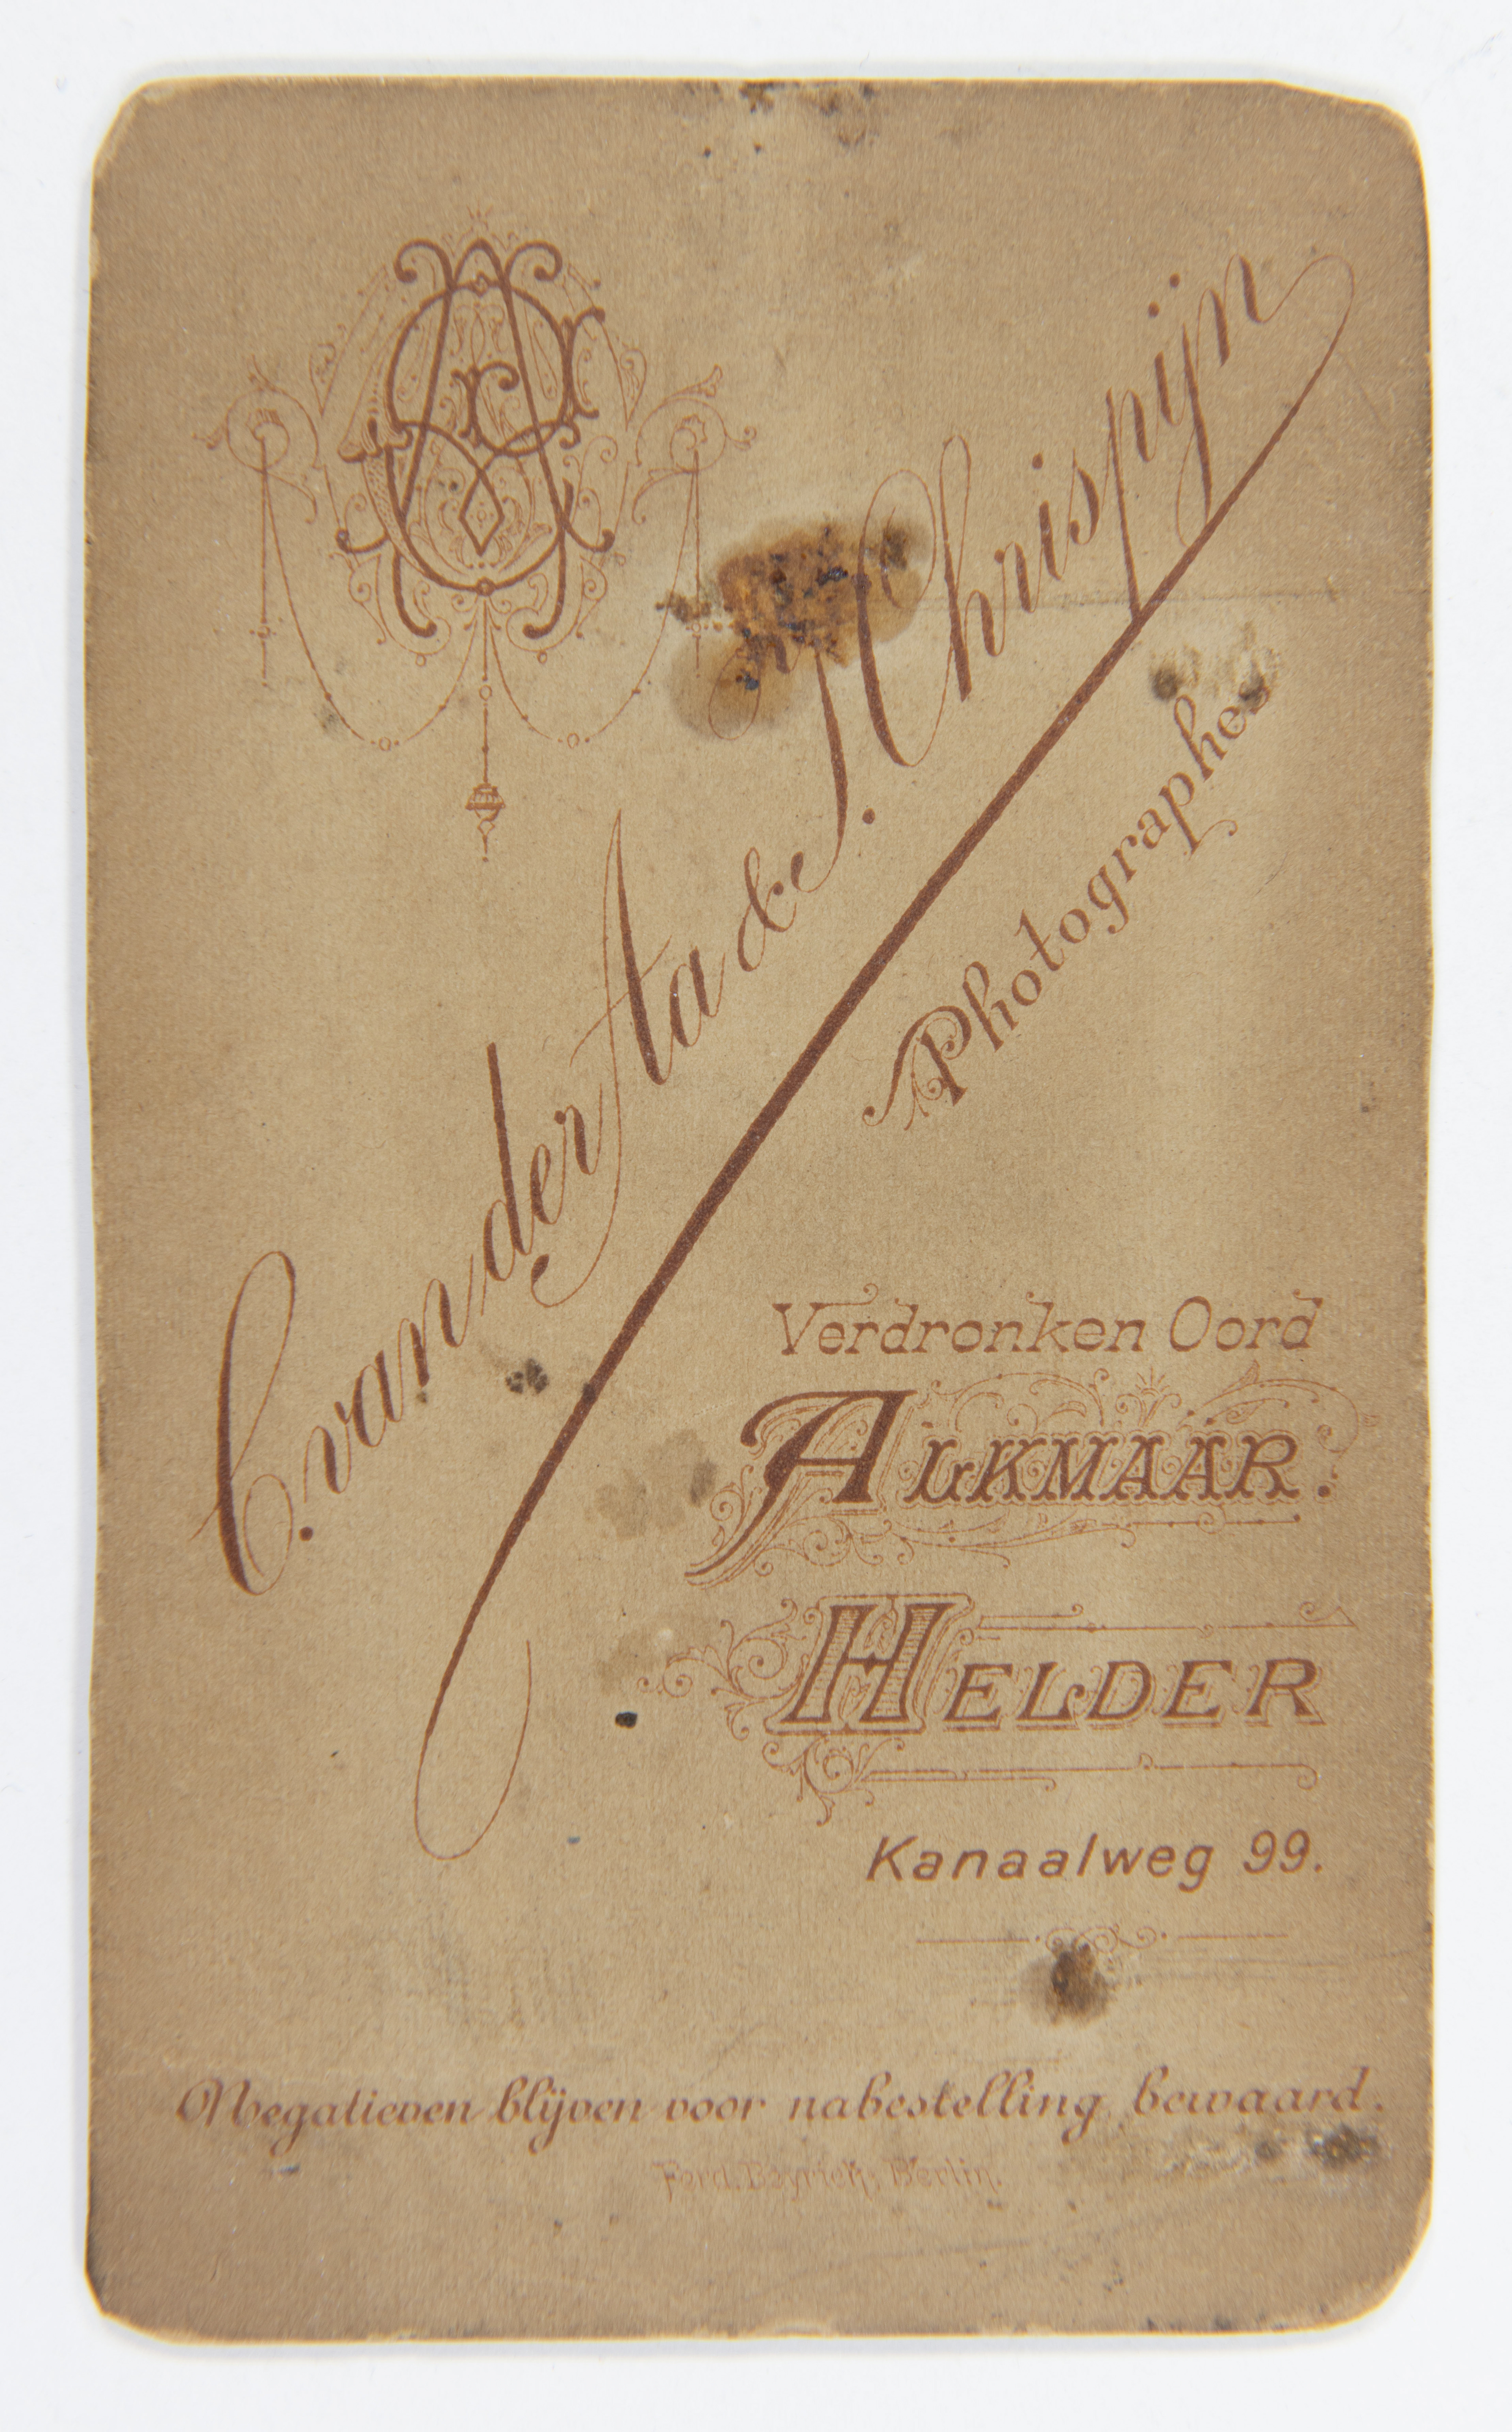 C. van der Aa & J. Chrispijn
Photographes
Verdronken Oord
ALKMAAR.
HELDER
Kanaalweg 99.
Negatieven blijven voor nabestelling bewaard.
Ferd. Beyrich, Berlin.